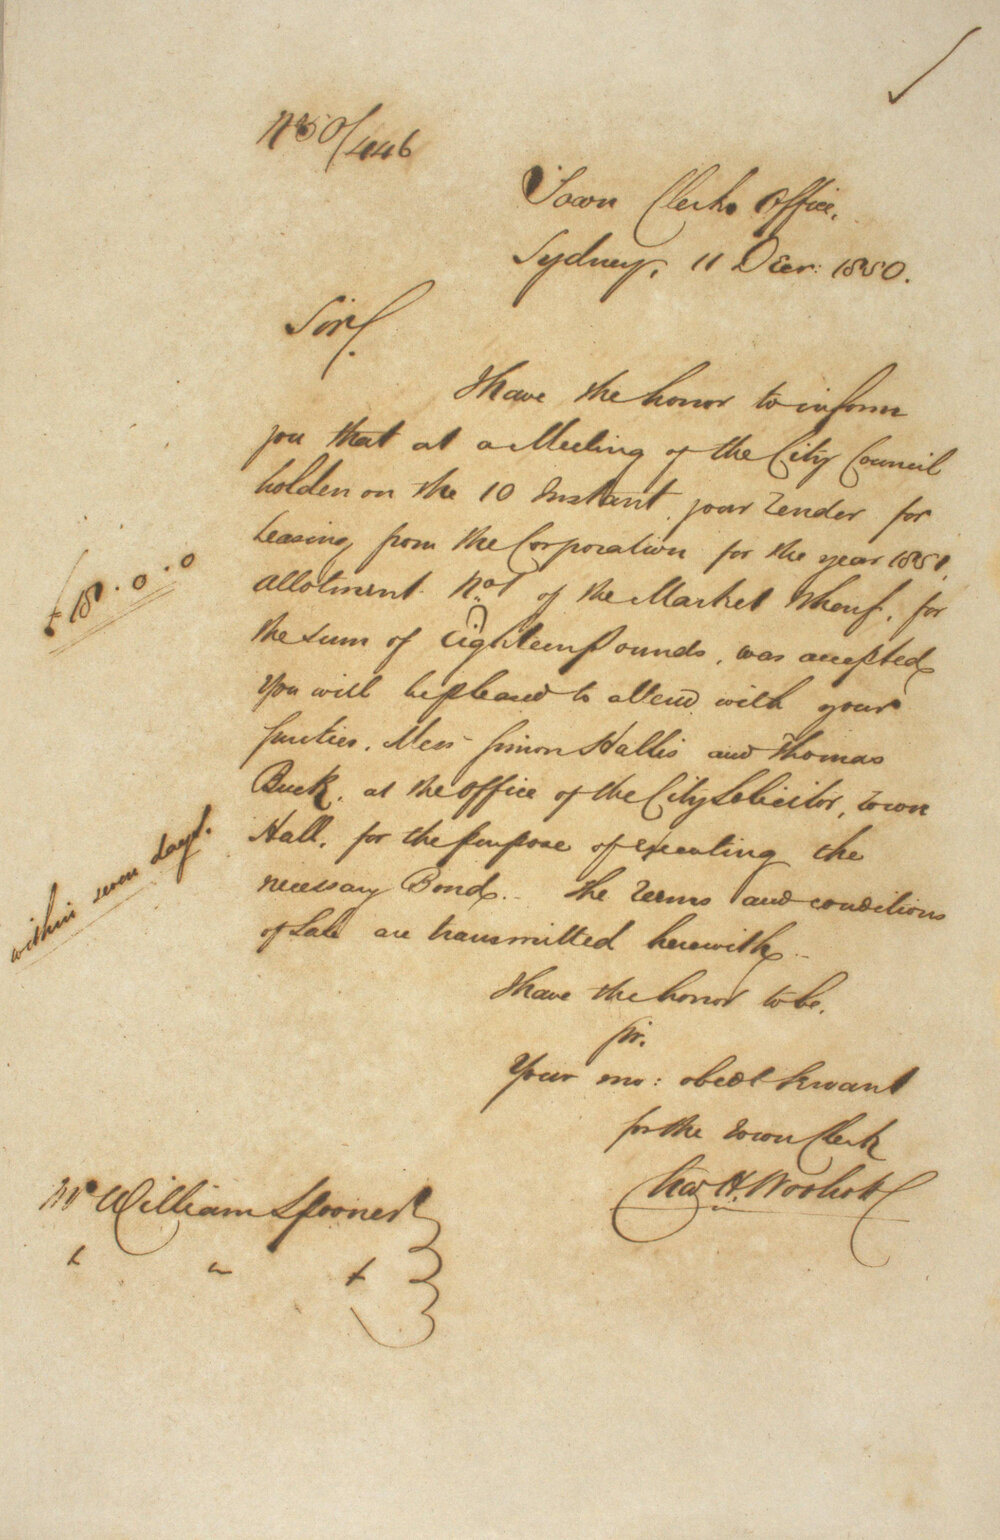 No 50/446
Town Clerks Office,
Sydney, 11 Decr: 1850.
Sir,
I have the honor to inform
you that at a Meeting of the City Council
holden on the 10 Instant, your Tender for
Leasing from the Corporation for the year 1851,
allotment No 1 of the Market Wharf, for
the sum of Eighteen Pounds, was accepted
£18 . 0 . 0
You will be pleased to attend with your
sureties, Mess Simon Hallis and Thomas
Buck, at the office of the City Solicitor, Town
Hall, for the purpose of executing the
within seven days.
necessary Bond. The Terms and conditions
of Sale are transmitted herewith
I have the honor to be,
Sir,
Your mo: obedt Servant
for the Town Clerk
Chas H. Woolcott
Mr William Spooner